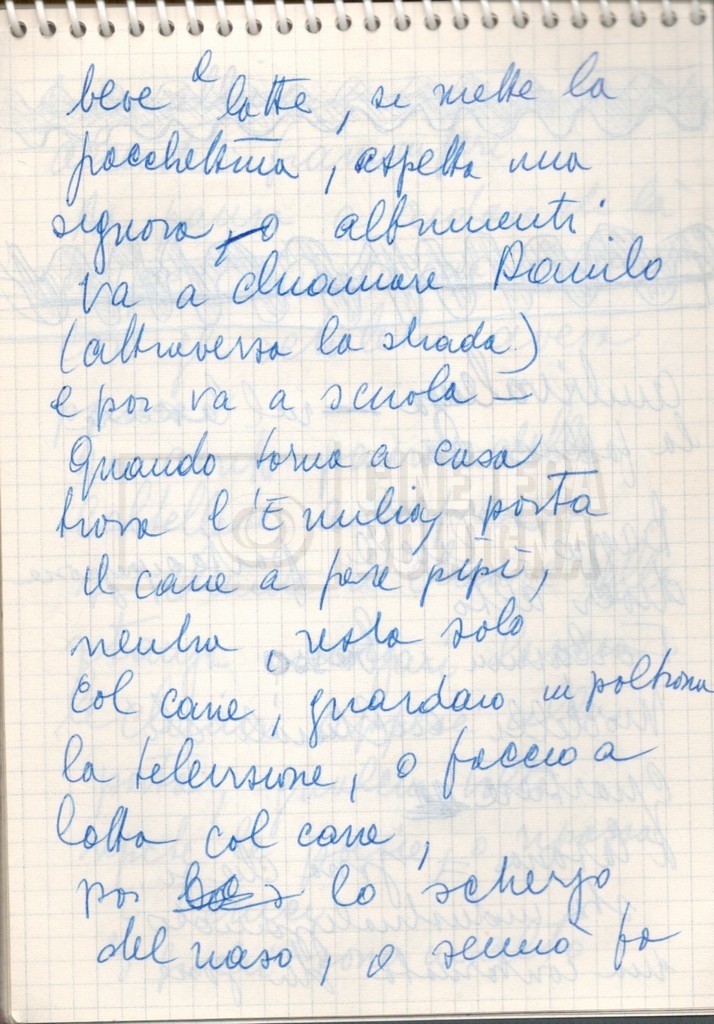 beve il latte, si mette la
pacchettina, aspetta una
signora, o altrimenti
va a chiamare Danilo
(attraversa la strada)
e poi va a scuola -
Quando torna a casa
trova l'Emilia, porta
il cane a fare pipì,
rientra, resta solo
col cane, guardano in poltrona
la televisione, o faccio a
lotta col cane,
poi lo scherzo
del naso, o sennò fa
CINETECA
BOLOGNA